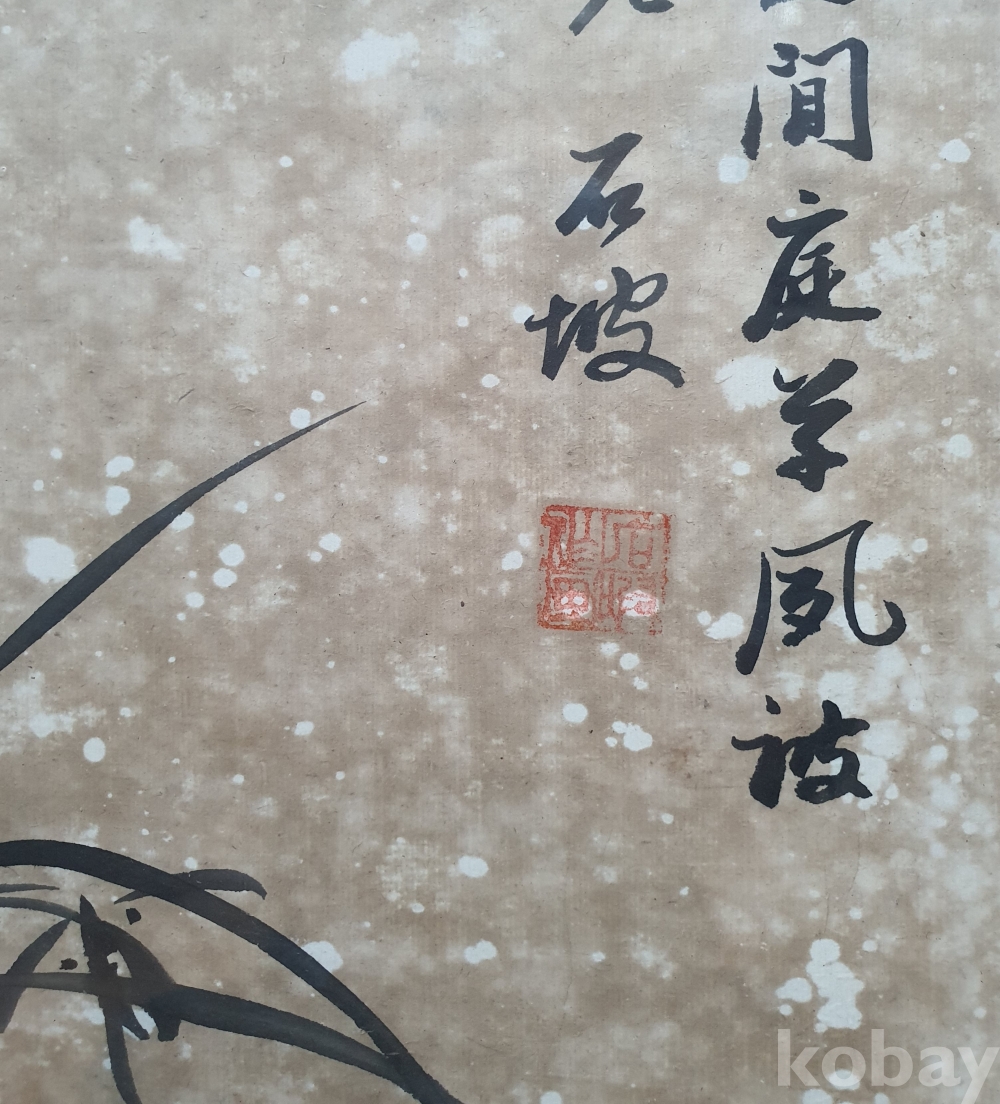 間庭草夙被
石坡
kobay